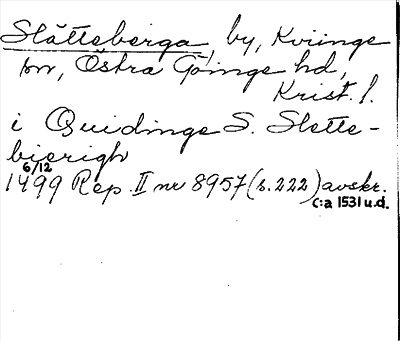 Slättaberga, by, Kviinge
sn, Östra Göinge hd,
Krist. l.
i Quidinge S. Slette-
bierigh
6/12
1499 Rep. II nr 8957 (s. 222) avskr.
c:a 1531 u.d.